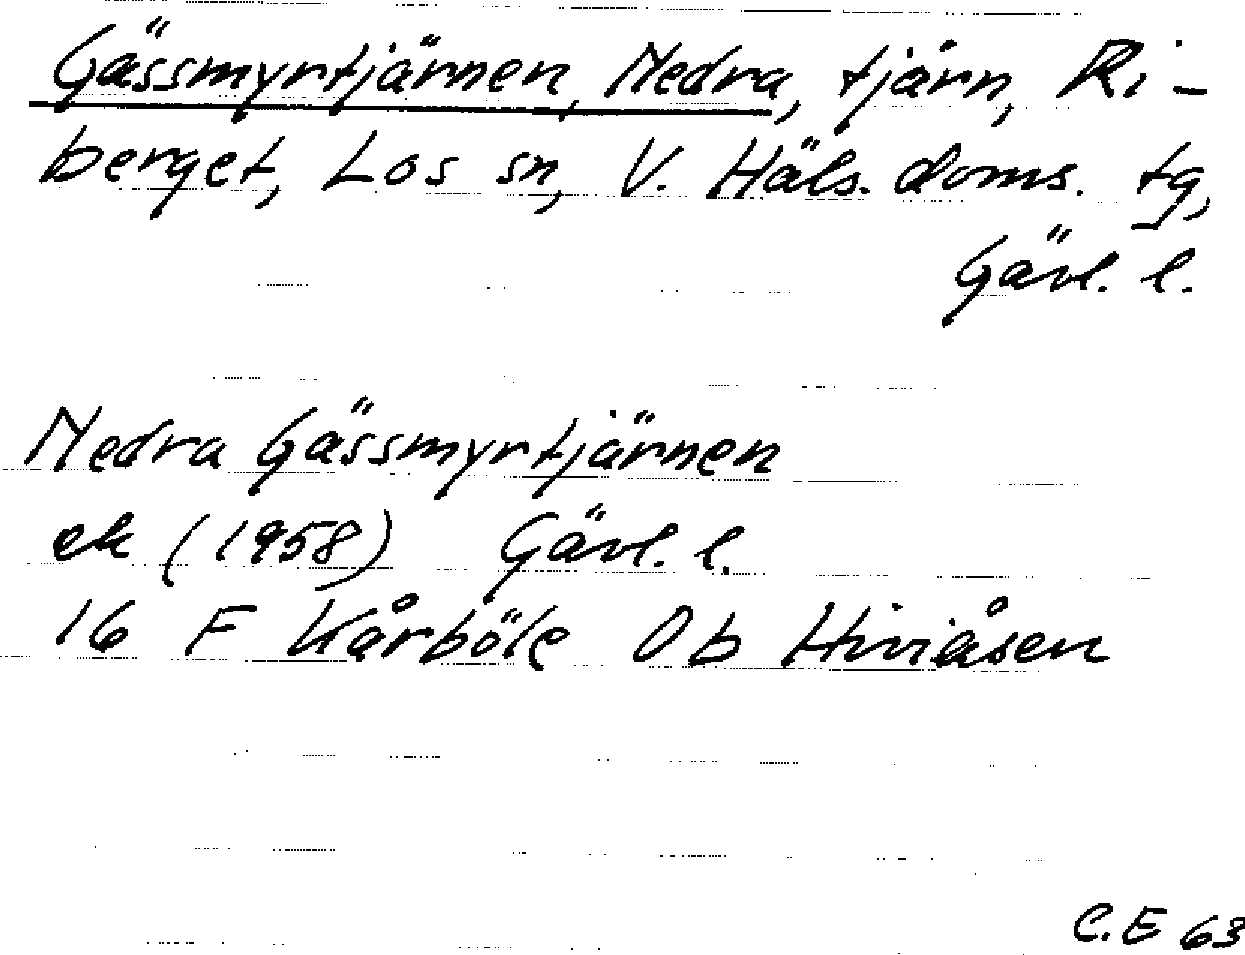 Gässmyrtjärnen, Nedra, tjärn, Ri-
berget, Los sn, V. Häls. doms. tg,
Gävl. l.
Nedra Gässmyrtjärnen
ek (1958) Gävl. l.
16 F Kårböle 0b Hiviåsen
C.E 63